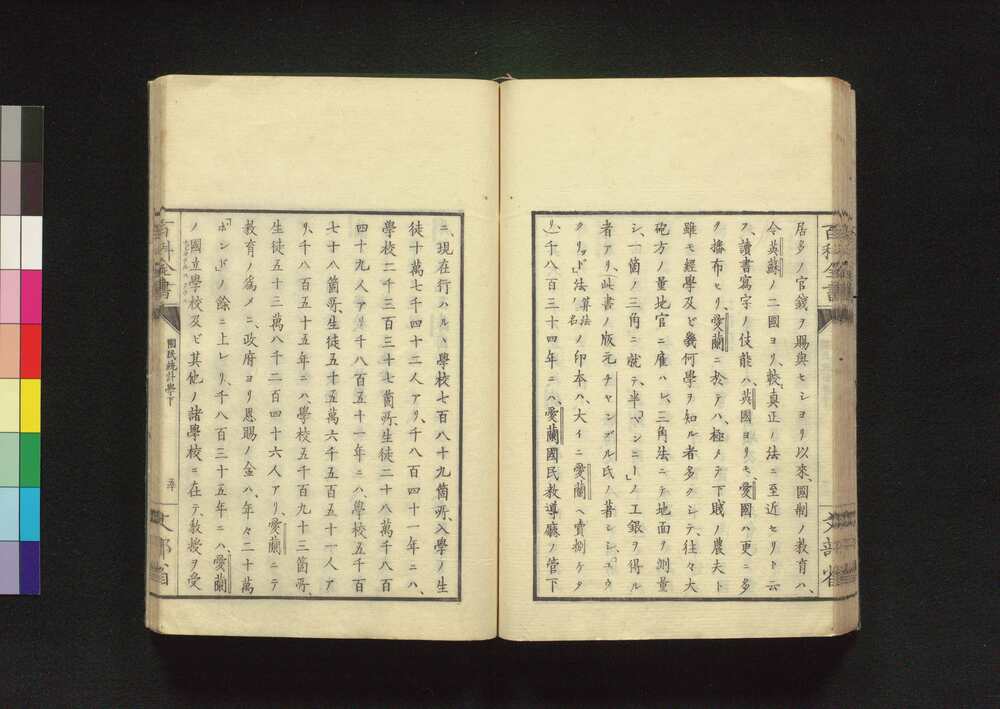 居多ノ官錢ヲ賜與セシヨリ以來、國制ノ教育ハ、
令英蘇ノ二國ヨリ、較眞正ノ法ニ至近セリト云
フ、讀書寫字ノ伎能ハ、英國ヨリモ、愛國ハ更ニ多
ク播布セリ、愛蘭ニ於テハ、極メテ下賎ノ農夫ト
雖モ經學及ビ幾何學ヲ知ル者多クシテ、往々大
砲方ノ量地官ニ雇ハレ、三角法ニテ地面ヲ測量
シ、一箇ノ三角ニ就テ、半「マンニー」ノ工銀ヲ得ル
者アリ、此書ノ版元チャンブル氏ノ著シシ、ユウ
クリッド」法ノ算法ノ名ノ印本ハ、大イニ愛蘭ヘ賣捌ケタ
リ、千八百三十四年ニハ、愛蘭國民教導廳ノ管下
百科全書
文部省
ニ、現在行ハルヽ學校七百八十九箇所、入學ノ生
徒十萬七千四十二人アリ、千八百四十一年ニハ、
學校二千三百三十七箇所、生徒二十八萬千八百
四十九人アリ、千八百五十一年ニハ、學校五千百
七十八箇所、生徒五十五萬六千五百五十一人ア
リ、千八百五十五年ニハ、學校五千百九十三箇所、
生徒五十三萬八千二百四十六人アリ、愛蘭ニテ
教育ノ爲メニ、政府ヨリ恩賜ノ金ハ、年々二十萬
「ポンド」ノ餘ニ上レリ、千八百三十五年ニハ、愛蘭
ノ國立學校及ビ其他ノ諸學校ニ在テ、教授ヲ受
百科全書
國民統計學下
五
文部省